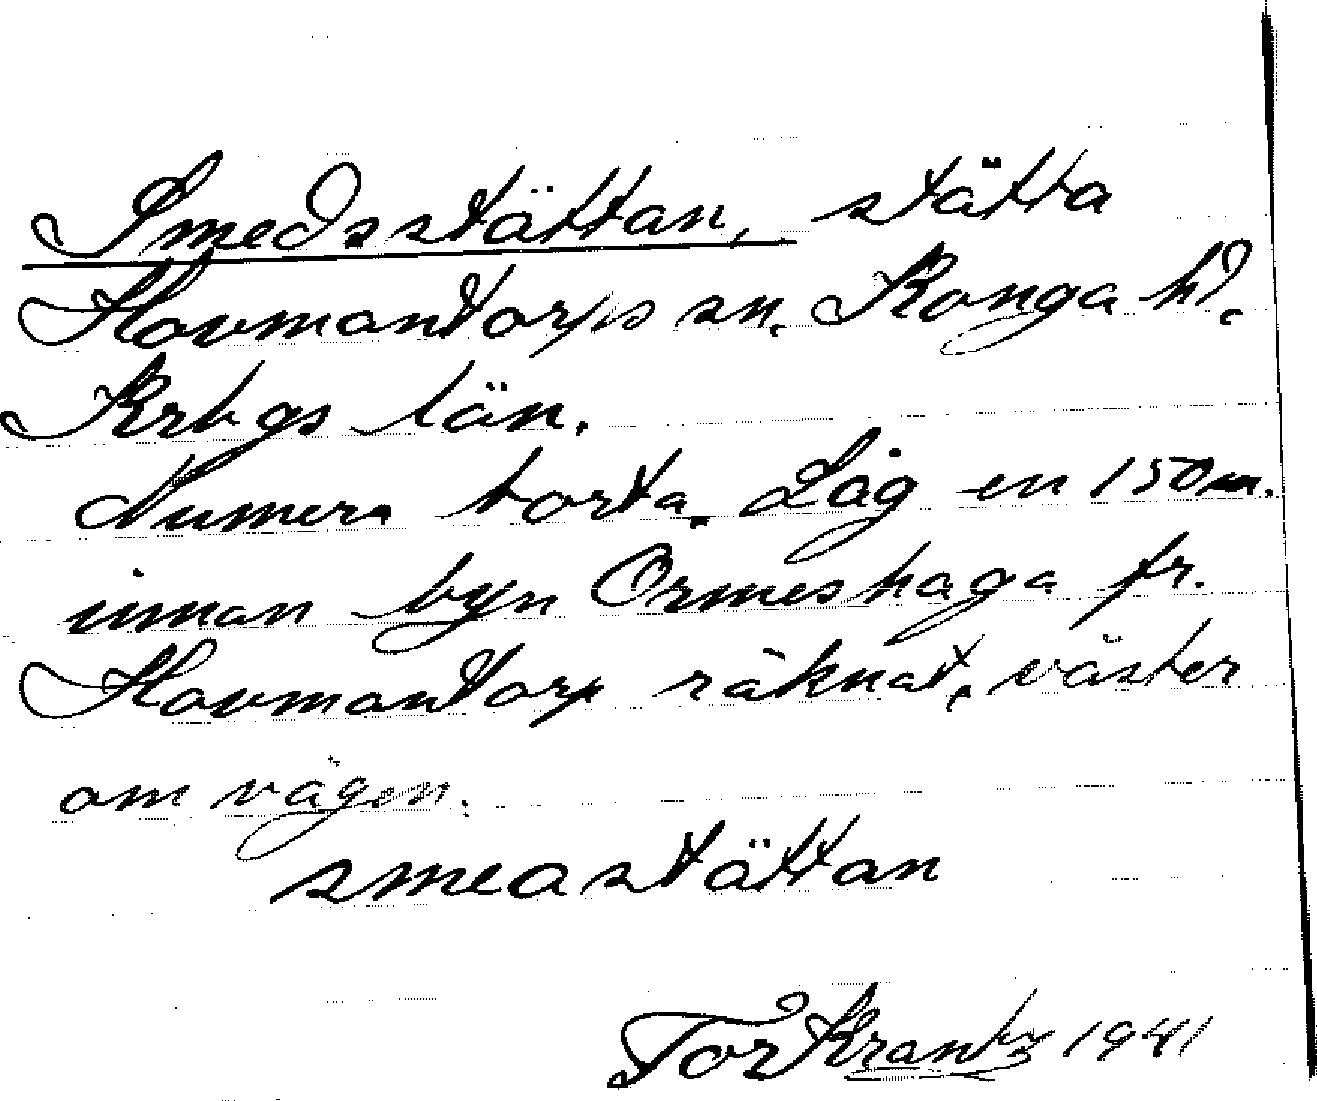 Smedsstättan, stätta
Hovmantorps sn. Konga hd.
Krbgs län.
Numera borta. Låg en 150 m.
innan byn Ormeshaga fr.
Hovmantorp räknat, väster
om vägen.
smeastättan
Tor Krantz 1941